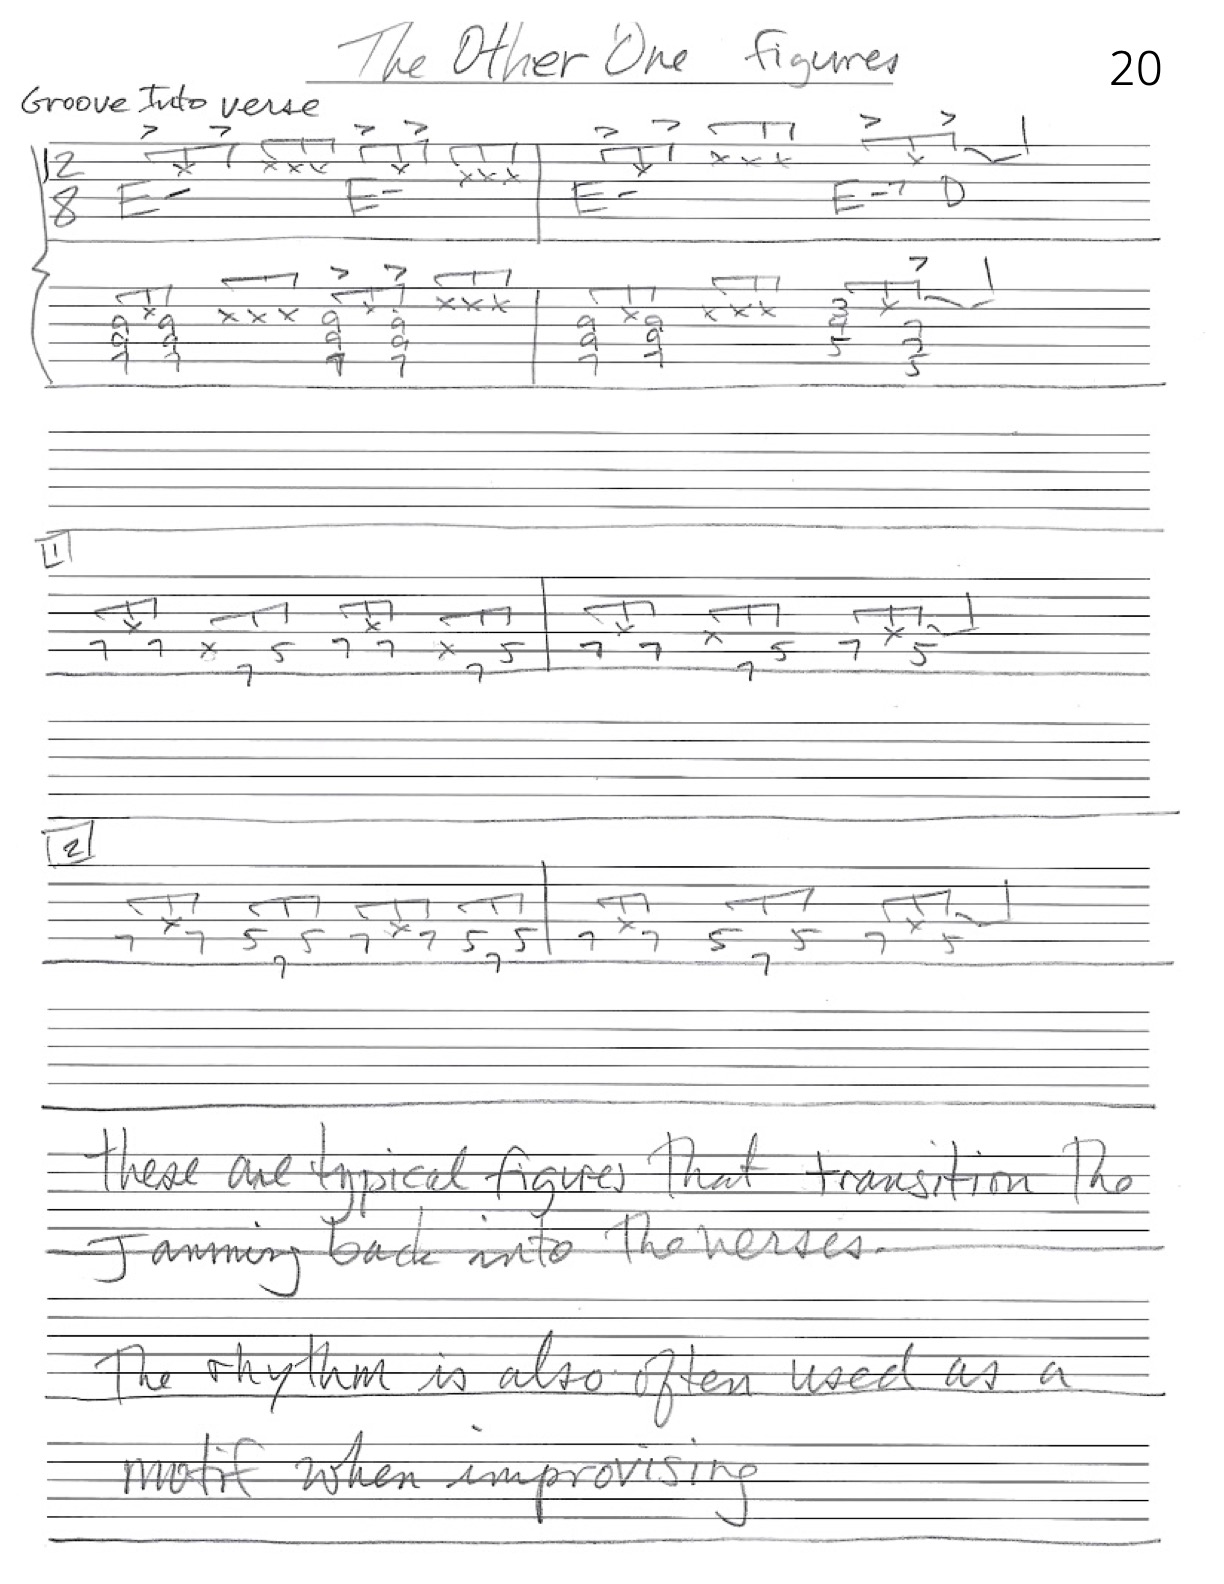 The Other One figures
20
Groove Into verse
12
8
E- E- E- E-7 D
x x x x x x x x x x x x x
x x x x x x x x x x x x x
9 9 9 9 9 9 3 7
9 9 9 9 9 9 4 7
7 7 7 7 7 7 5 5
1
x x x x x x x
7 7 5 7 7 5 7 7 5 7 5
7 7 7
2
x x x x
7 7 5 5 7 7 5 5 7 7 5 5 7 5
7 7 7
these are typical figures That transition The
Jamming back into The verses.
The rhythm is also often used as a
motif when improvising